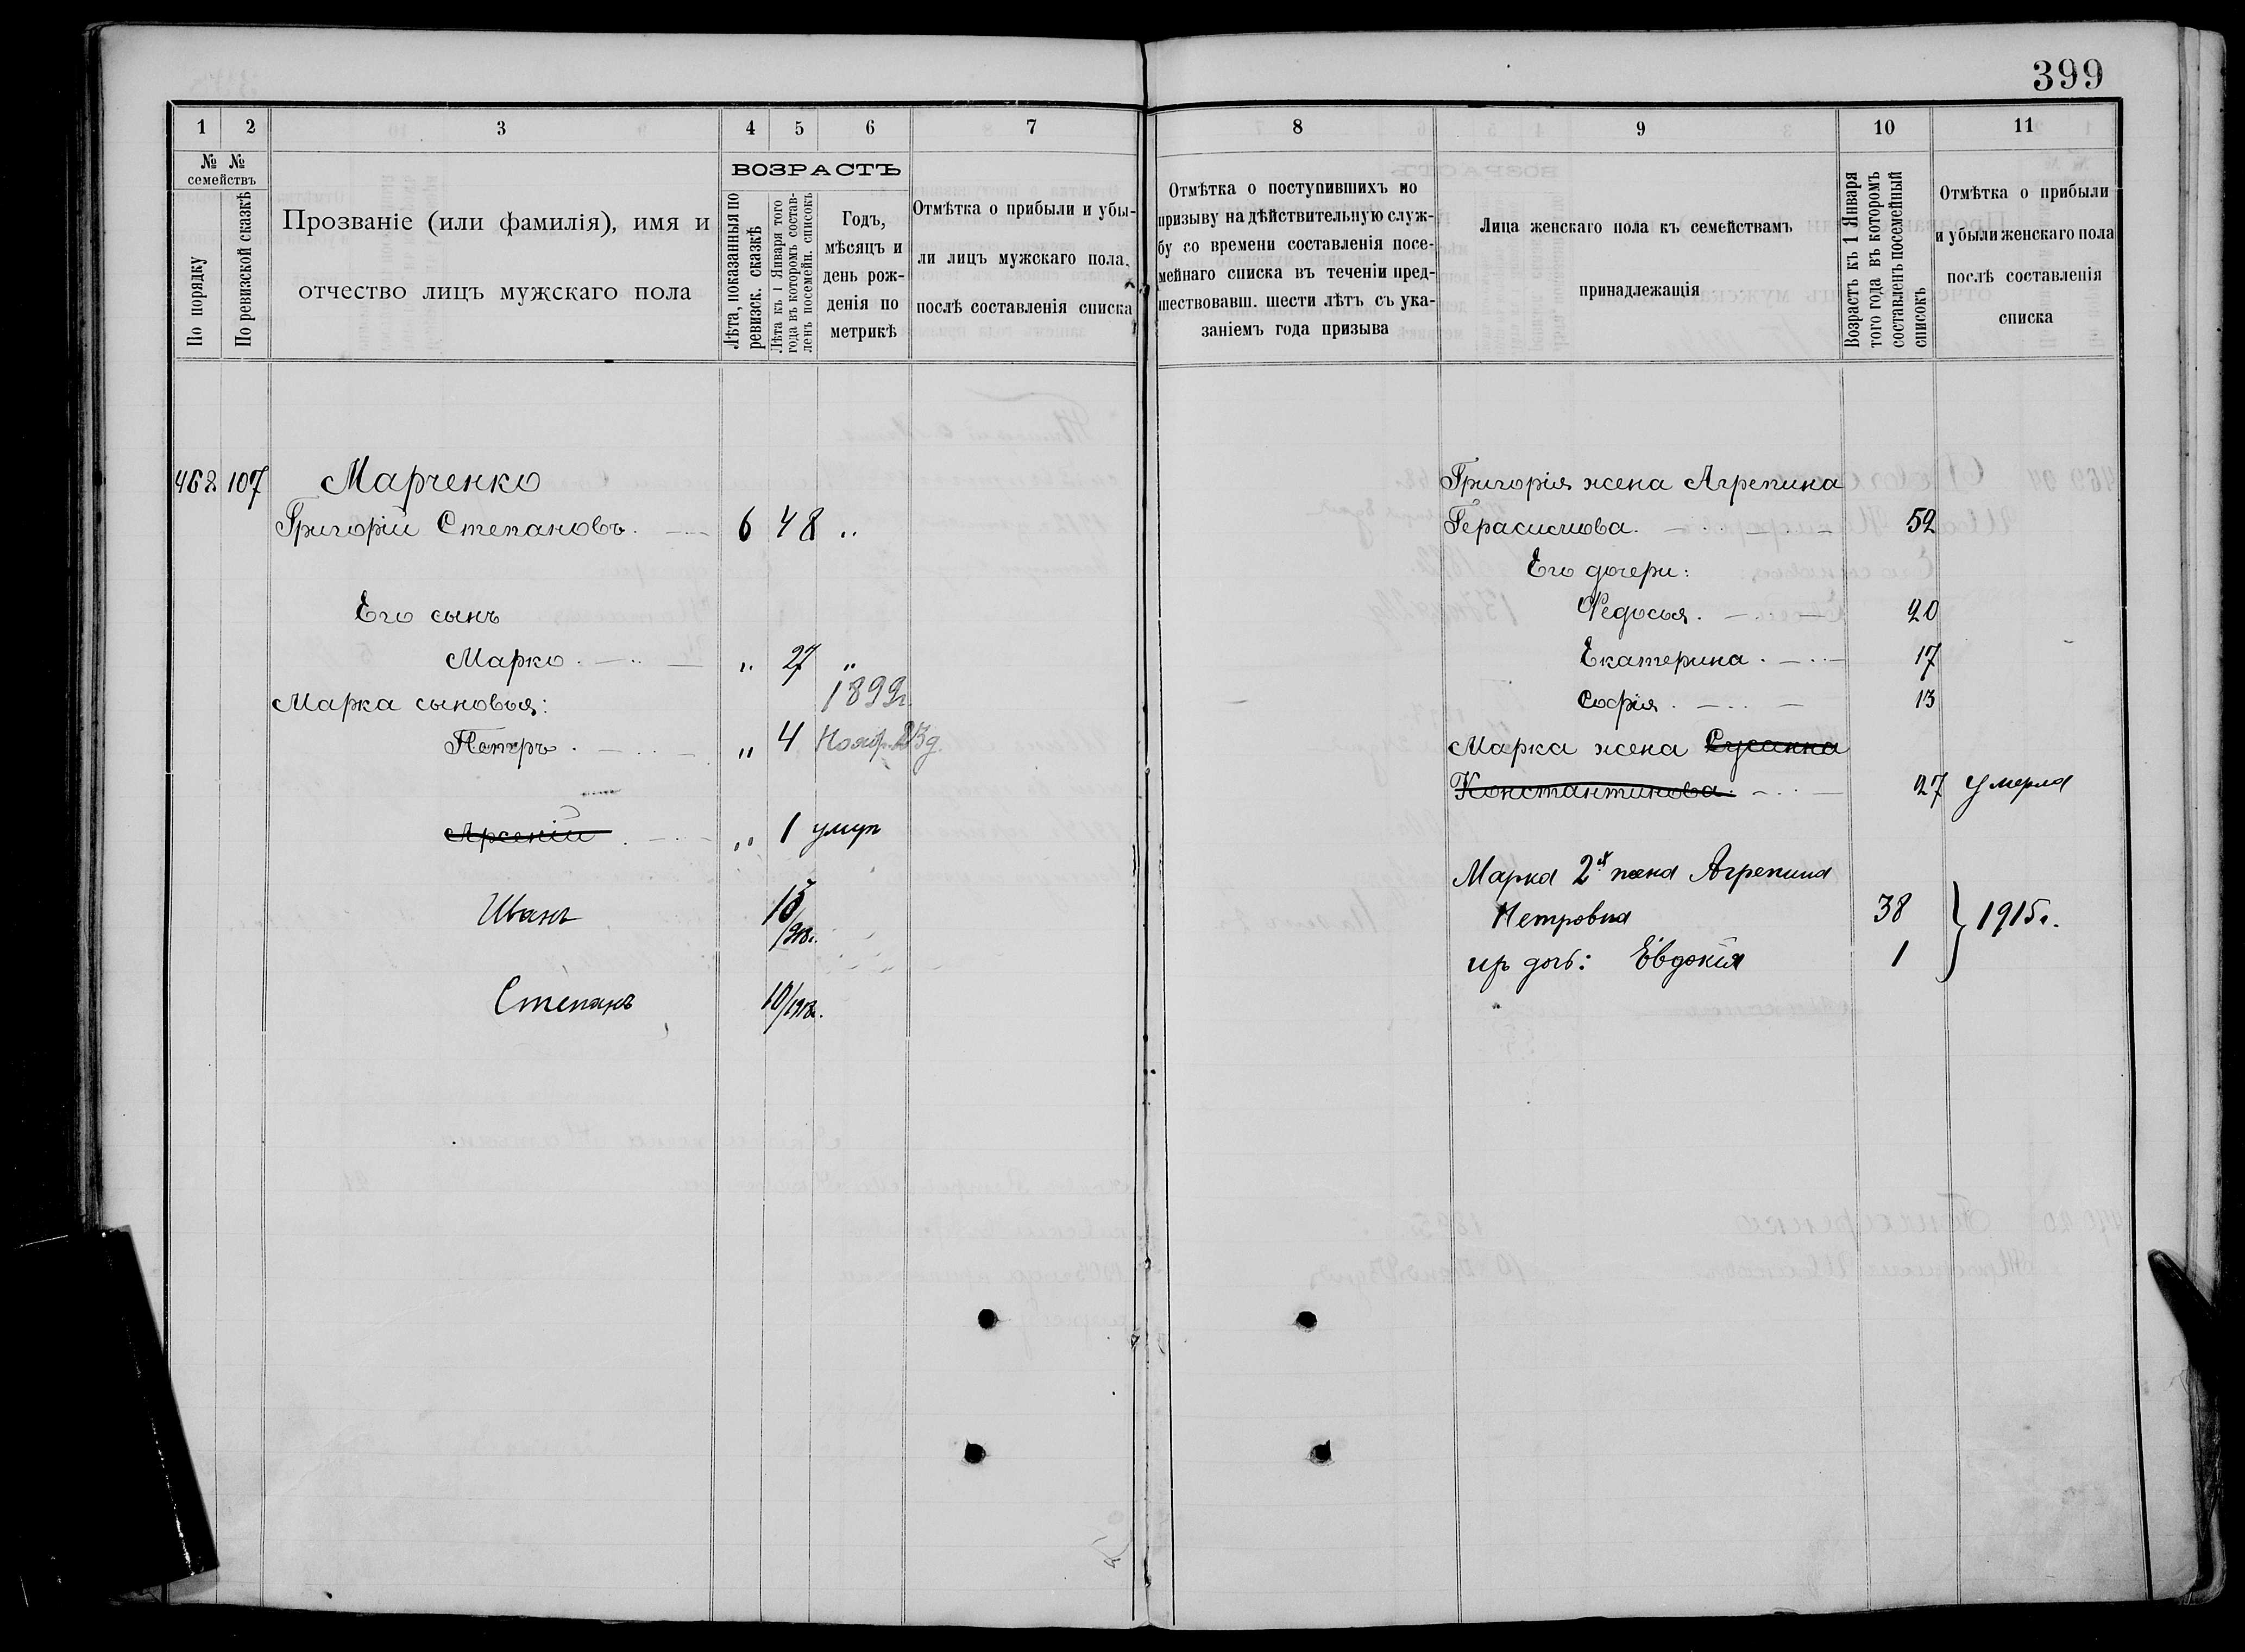 399
1 2 3 4 5 6 7
№ № семействъ
По порядку
По ревизской сказкѣ
Прозваніе (или фамилія), имя и
отчество лицъ мужскаго пола
ВОЗРАСТЪ
Лѣта, показанныя по
ревизск. сказкѣ
Лѣта къ 1 Января того
года въ которомъ состав-
ленъ посемейн. списокъ
Годъ,
мѣсяцъ и
день рож-
денія по
метрикѣ
Отмѣтка о прибыли и убы-
ли лицъ мужскаго пола,
послѣ составленія списка
468 107 Марченко
Григорій Степановъ. 6 48 "
Его сынъ
Марко. " 27 "
Марка сыновья: 1899г.
Петръ. " 4 Нояб. 23 д.
Арсеній. " 1 умер
Иванъ
Степанъ 10/1913г.
8 9 10 11
Отмѣтка о поступившихъ по
призыву на дѣйствительную служ-
бу со времени составленія посе-
мейнаго списка въ теченіи пред-
шествовавш. шести лѣтъ съ ука-
заніемъ года призыва
Лица женскаго пола къ семействамъ
принадлежащія
Возрастъ къ 1 Января
того года въ которомъ
составленъ посемейный
списокъ
Отмѣтка о прибыли
и убыли женскаго пола
послѣ составленія
списка
Григорія жена Агрепина
Герасимова. 52
Его дочери:
Федосья. 20
Екатерина. 17
Софія. 13
Марка жена Сусанна
Константинова. 27 умерла
Марка 2я жена Агрепина
Петровна 38
их доч: Евдокія 1
} 1915г.